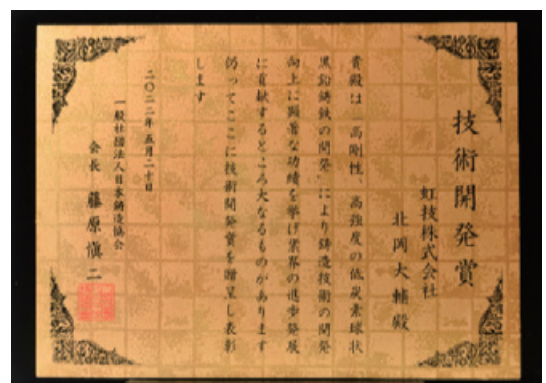 技術開発賞
虹技株式会社
北岡大輔殿
貴殿は「高剛性、高強度の低炭素球状
黒鉛鋳鉄の開発」により鋳造技術の開発
向上に顕著な功績を挙げ業界の進歩発展
に貢献するところ大なるものがあります
仍ってここに技術開発賞を贈呈し表彰
します
二〇二二年五月二十日
一般社団法人日本鋳造協会
会長 藤原愼二